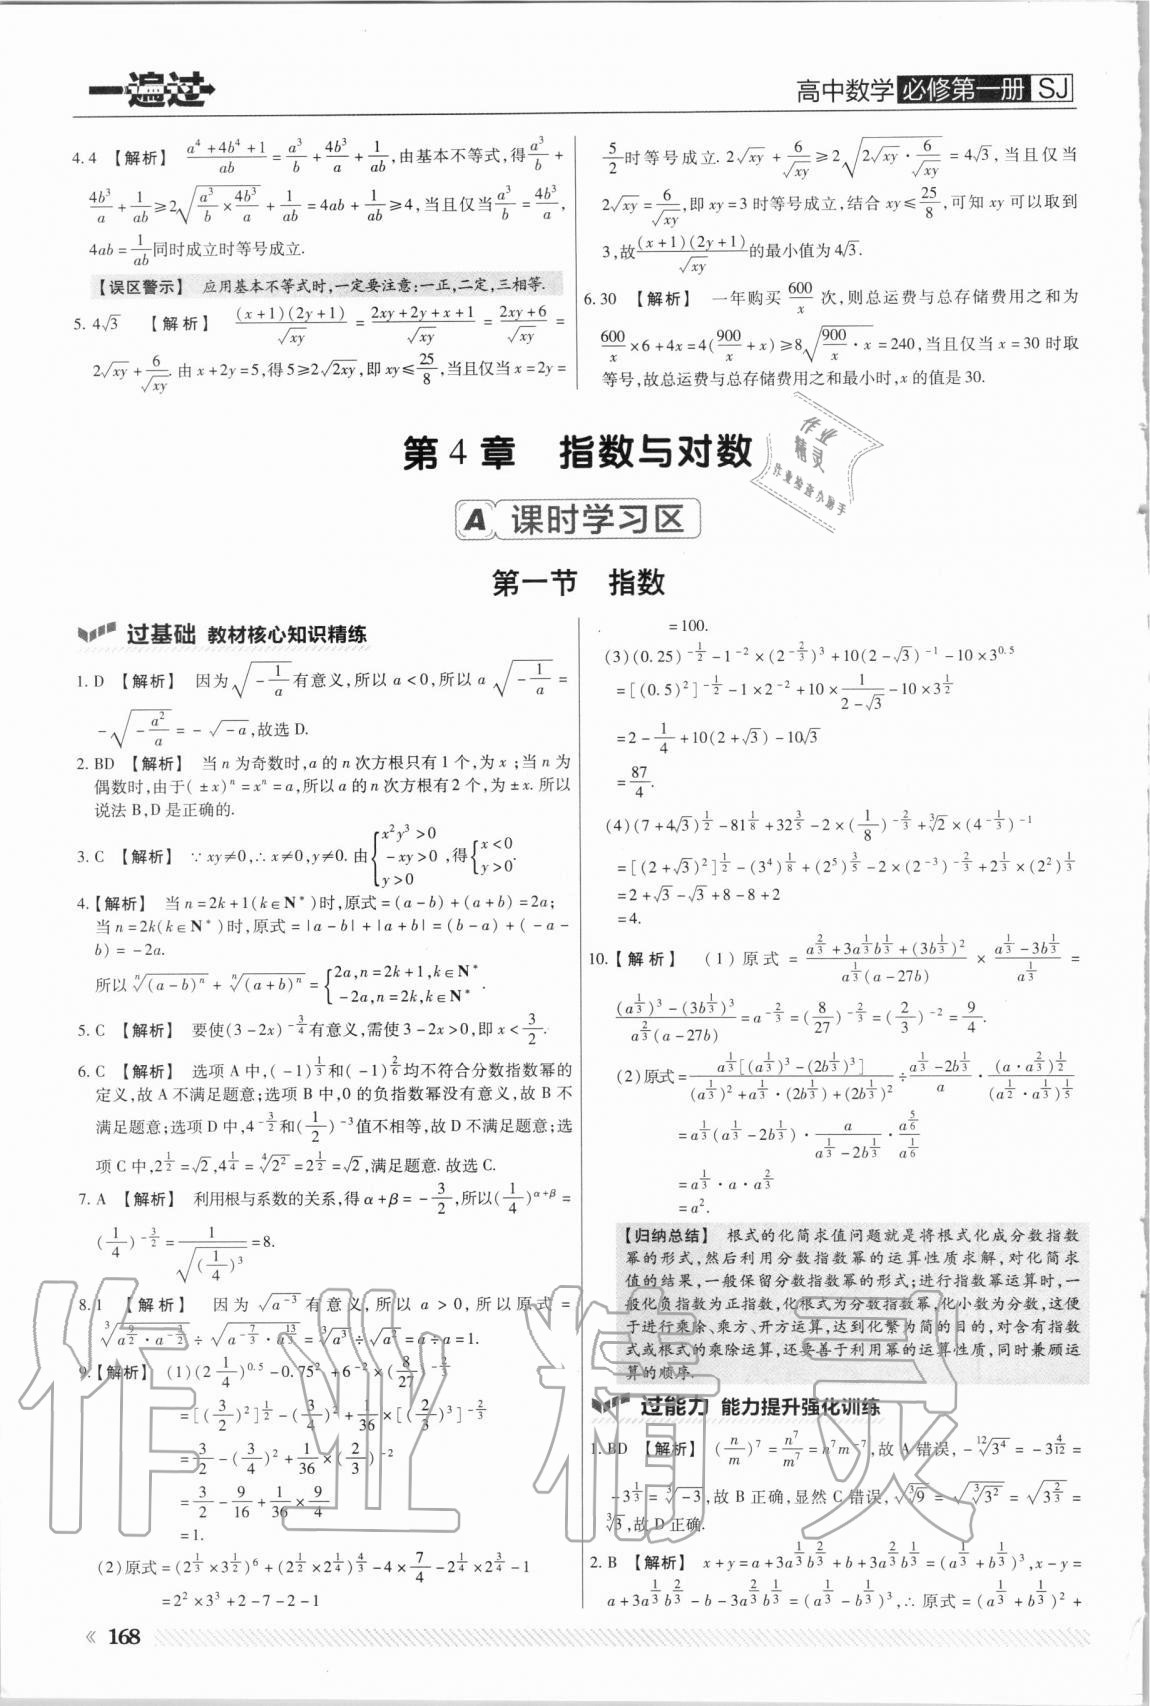 一遍过
高中数学 必修第一册 SJ
4.4 【解析】 (a⁴+4b⁴+1)/(ab) = a³/b + 4b³/a + 1/(ab),由基本不等式,得 a³/b +
4b³/a + 1/(ab) ≥ 2√(a³/b × 4b³/a) + 1/(ab) = 4ab + 1/(ab) ≥ 4,当且仅当 a³/b = 4b³/a,
4ab = 1/(ab) 同时成立时等号成立.
【误区警示】 应用基本不等式时,一定要注意:一正,二定,三相等.
5. 4√3 【解析】 (x+1)(2y+1)/√(xy) = (2xy+2y+x+1)/√(xy) = (2xy+6)/√(xy) =
2√(xy) + 6/√(xy). 由 x+2y=5,得 5≥2√(2xy),即 xy≤25/8,当且仅当 x=2y=
5/2 时等号成立. 2√(xy) + 6/√(xy) ≥ 2√(2√(xy)·6/√(xy)) = 4√3,当且仅当
2√(xy) = 6/√(xy),即 xy=3 时等号成立,结合 xy≤25/8,可知 xy 可以取到
3,故 (x+1)(2y+1)/√(xy) 的最小值为 4√3.
6.30 【解析】 一年购买 600/x 次,则总运费与总存储费用之和为
600/x ×6+4x=4(900/x + x)≥8√(900/x · x)=240,当且仅当 x=30 时取
等号,故总运费与总存储费用之和最小时,x 的值是 30.
作业
精灵
作业检查小助手
第 4 章 指数与对数
A 课时学习区
第一节 指数
过基础 教材核心知识精练
1. D 【解析】 因为 √(-1/a) 有意义,所以 a<0,所以 a√(-1/a) =
-√(-a²/a) = -√(-a),故选 D.
2. BD 【解析】 当 n 为奇数时,a 的 n 次方根只有 1 个,为 x;当 n 为
偶数时,由于(±x)ⁿ=xⁿ=a,所以 a 的 n 次方根有 2 个,为±x. 所以
说法 B,D 是正确的.
3. C 【解析】 ∵xy≠0,∴x≠0,y≠0. 由 {x²y³>0, -xy>0, y>0, 得 {x<0, y>0.
4.【解析】 当 n=2k+1(k∈N*)时,原式=(a-b)+(a+b)=2a;
当 n=2k(k∈N*)时,原式=|a-b|+|a+b|=(b-a)+(-a-
b)=-2a.
所以 ⁿ√((a-b)ⁿ) + ⁿ√((a+b)ⁿ) = {2a,n=2k+1,k∈N* -2a,n=2k,k∈N* .
5. C 【解析】 要使(3-2x)^(-3/4)有意义,需使 3-2x>0,即 x<3/2.
6. C 【解析】 选项 A 中,(-1)^(1/3)和(-1)^(2/6)均不符合分数指数幂的
定义,故 A 不满足题意;选项 B 中,0 的负指数幂没有意义,故 B 不
满足题意;选项 D 中,4^(-3/2)和(1/2)^(-3)值不相等,故 D 不满足题意;选
项 C 中,2^(1/2)=√2,4^(1/4)=⁴√(2²)=2^(1/2)=√2,满足题意. 故选 C.
7. A 【解析】 利用根与系数的关系,得 α+β=-3/2,所以(1/4)^(α+β)=
(1/4)^(-3/2) = 1/√((1/4)³) =8.
8.1 【解析】 因为 √(a⁻³) 有意义,所以 a>0,所以原式=
³√(a^(9/2)·a^(-3/2)) ÷ √(a^(-7/3)·a^(13/3)) = ³√(a³) ÷ √(a²) = a÷a=1.
9.【解析】 (1)(2 1/4)^0.5 -0.75²+6⁻²×(8/27)^(-2/3)
=[(3/2)²]^(1/2) -(3/4)²+1/36×[(2/3)³]^(-2/3)
=3/2-(3/4)²+1/36×(2/3)⁻²
=3/2-9/16+1/36×9/4
=1.
(2)原式=(2^(1/3)×3^(1/2))⁶+(2^(1/2)×2^(1/4))^(4/3)-4×7/4-2^(1/4)×2^(3/4)-1
=2²×3³+2-7-2-1
=100.
(3)(0.25)^(-1/2)-1⁻²×(2^(-2/3))³+10(2-√3)⁻¹-10×3^0.5
=[(0.5)²]^(-1/2)-1×2⁻²+10×1/(2-√3)-10×3^(1/2)
=2-1/4+10(2+√3)-10√3
=87/4.
(4)(7+4√3)^(1/2)-81^(1/8)+32^(3/5)-2×(1/8)^(-2/3)+³√2×(4^(-1/3))⁻¹
=[(2+√3)²]^(1/2)-(3⁴)^(1/8)+(2⁵)^(3/5)-2×(2⁻³)^(-2/3)+2^(1/3)×(2²)^(1/3)
=2+√3-√3+8-8+2
=4.
10.【解析】 (1)原式= (a^(2/3)+3a^(1/3)b^(1/3)+(3b^(1/3))²)/(a^(1/3)(a-27b)) × (a^(1/3)-3b^(1/3))/a^(1/3) =
((a^(1/3))³-(3b^(1/3))³)/(a^(2/3)(a-27b)) =a^(-2/3)=(8/27)^(-2/3)=(2/3)⁻²=9/4.
(2)原式= a^(1/3)[(a^(1/3))³-(2b^(1/3))³]/((a^(1/3))²+a^(1/3)·(2b^(1/3))+(2b^(1/3))²) ÷ (a^(1/3)-2b^(1/3))/a · (a·a^(2/3))^(1/2)/(a^(1/2)·a^(1/3))^(1/5)
=a^(1/3)(a^(1/3)-2b^(1/3))·a/(a^(1/3)-2b^(1/3))·a^(5/6)/a^(1/6)
=a^(1/3)·a·a^(2/3)
=a².
【归纳总结】 根式的化简求值问题就是将根式化成分数指数
幂的形式,然后利用分数指数幂的运算性质求解,对化简求
值的结果,一般保留分数指数幂的形式;进行指数幂运算时,一
般化负指数为正指数,化根式为分数指数幂,化小数为分数,这便
于进行乘除、乘方、开方运算,达到化繁为简的目的,对含有指数
式或根式的乘除运算,还要善于利用幂的运算性质,同时兼顾运
算的顺序.
过能力 能力提升强化训练
1. BD 【解析】 (n/m)⁷=n⁷/m⁷=n⁷m⁻⁷,故 A 错误,-¹²√(3⁴)=-3^(4/12)=
-3^(1/3)=³√(-3),故 B 正确,显然 C 错误,√(³√9)=√(³√(3²))=√(3^(2/3))=
³√3,故 D 正确.
2. B 【解析】 x+y=a+3a^(1/3)b^(2/3)+b+3a^(2/3)b^(1/3)=(a^(1/3)+b^(1/3))³,x-y=
a+3a^(1/3)b^(2/3)-b-3a^(2/3)b^(1/3)=(a^(1/3)-b^(1/3))³,∴原式=(a^(1/3)+b^(1/3))²+
作业精灵
« 168